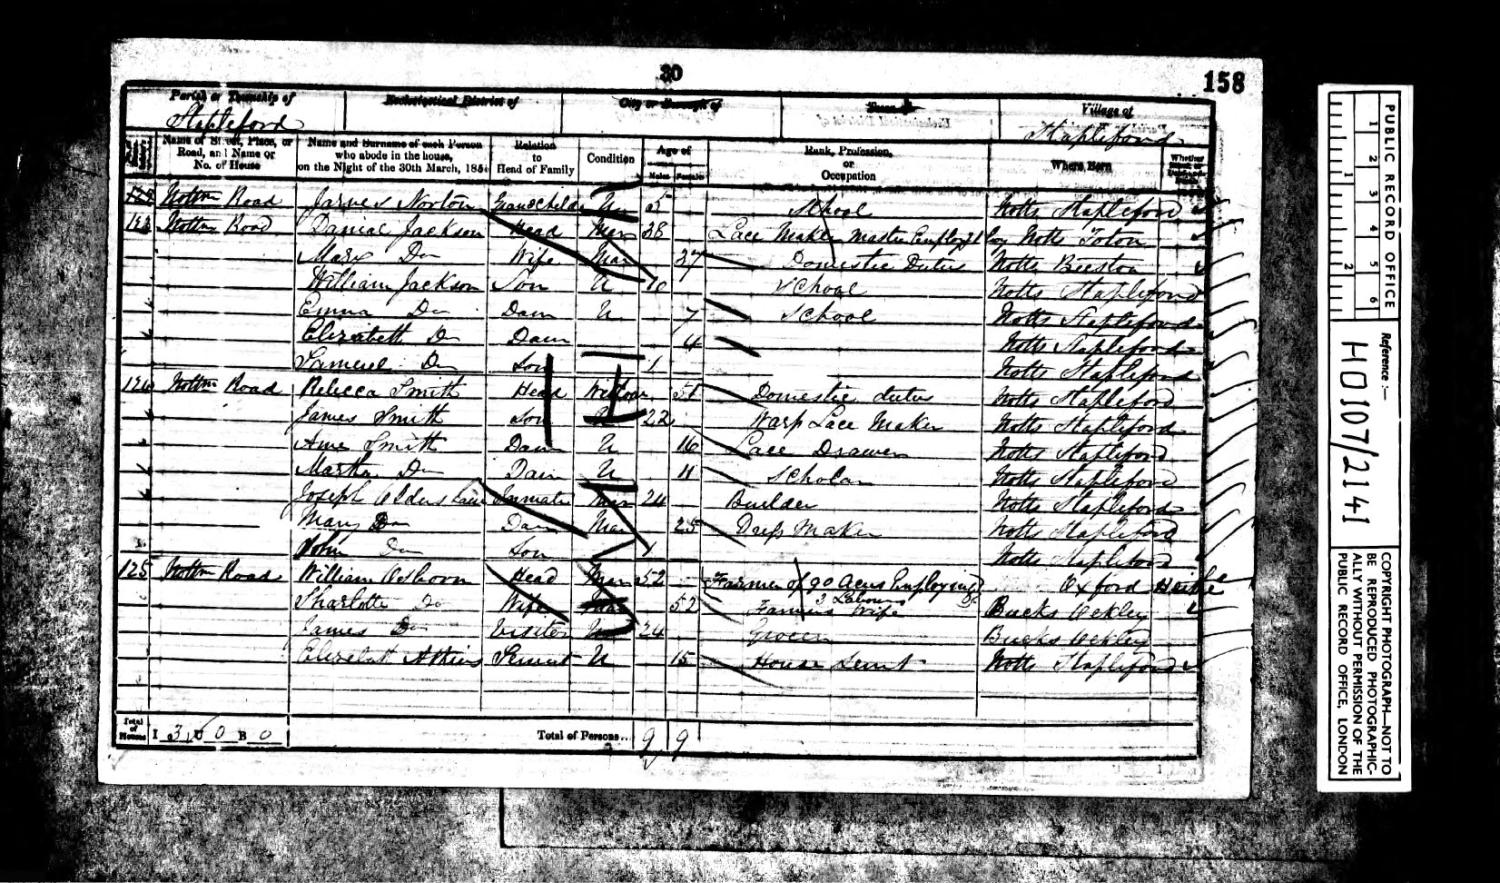 20
158
Parish or Township of
Ecclesiastical District of
City or Borough of
Town of
Village of
Stapleford
Stapleford
Name of Street, Place, or Road, and Name or No. of House
Name and Surname of each Person who abode in the house, on the Night of the 30th March, 1851
Relation to Head of Family
Condition
Age of
Males
Females
Rank, Profession, or Occupation
Where Born
Whether
Nottm Road Norton Grandchild Un 5 School Notts Stapleford
123 Nottm Road Daniel Jackson Head Mar 38 Lace Maker Master Notts Toton
Mary Do Wife Mar 37 Domestic Duties Notts Beeston
William Jackson Son U 10 School Notts Stapleford
Emma Do Daur U 7 School Notts Stapleford
Elizabeth Do Daur 4 Notts Stapleford
Samuel Do Son 1 Notts Stapleford
124 Nottm Road Rebecca Smith Head Widow 51 Domestic duties Notts Stapleford
James Smith Son U 22 Warp Lace Maker Notts Stapleford
Ann Smith Daur U 16 Lace Drawer Notts Stapleford
Martha Do Daur U 11 Scholar Notts Stapleford
Joseph Mar 24 Builder Notts Stapleford
Mary Do Mar 25 Dress Maker Notts Stapleford
John Do Son 1 Notts Stapleford
125 Nottm Road William Osborn Head Mar 52 Farmer of 90 Acres Employing Oxford
3 Labourers
Sharlotte Do Wife Mar 52 Farmers Wife Bucks
James Do Visitor 24 Grocer Bucks
Atkins Servant U 15 House Servt Notts Stapleford
Total of Houses I 3 U 0 B 0
Total of Persons... 9 9
PUBLIC RECORD OFFICE
1 2 3 4 5 6
1 2
Reference :-
HO107/2141
COPYRIGHT PHOTOGRAPH—NOT TO
BE REPRODUCED PHOTOGRAPHIC-
ALLY WITHOUT PERMISSION OF THE
PUBLIC RECORD OFFICE, LONDON